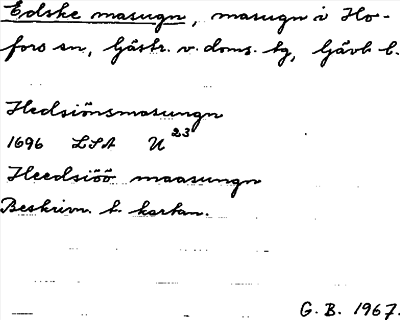 Edske masugn, masugn i Ho-
fors sn, Gästr. v. doms. hg, Gävb l.
Hedsiönsmasungn
1696 LSA U 23
Heedsiöö maasungn
Beskrivn. t. kartan.
G. B. 1967.